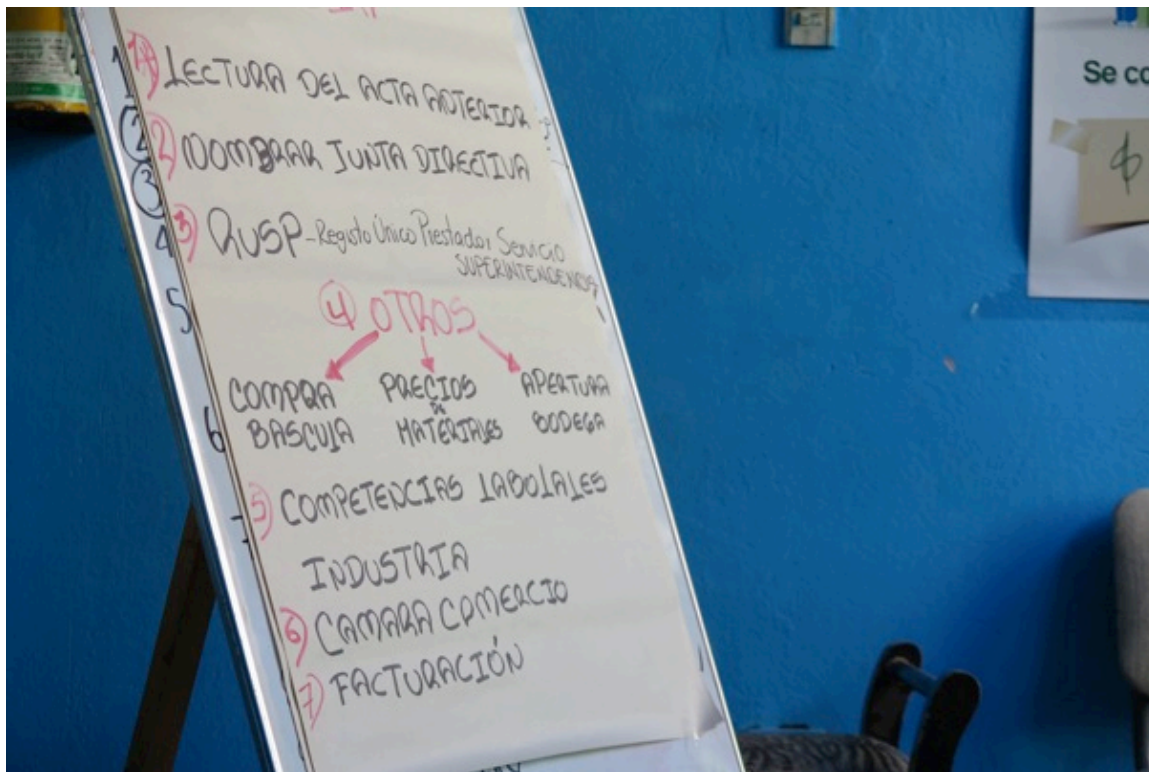 1) LECTURA DEL ACTA ANTERIOR
2) NOMBRAR JUNTA DIRECTIVA
3) RUSP - Registo Único Prestador Servicio
SUPERINTENDENCIA
4 OTROS
COMPRA BASCULA
PRECIOS DE MATERIALES
APERTURA BODEGA
5) COMPETENCIAS LABOLALES
INDUSTRIA
6) CAMARA COMERCIO
7) FACTURACIÓN
1
2
3
4
5
6
Se co
$